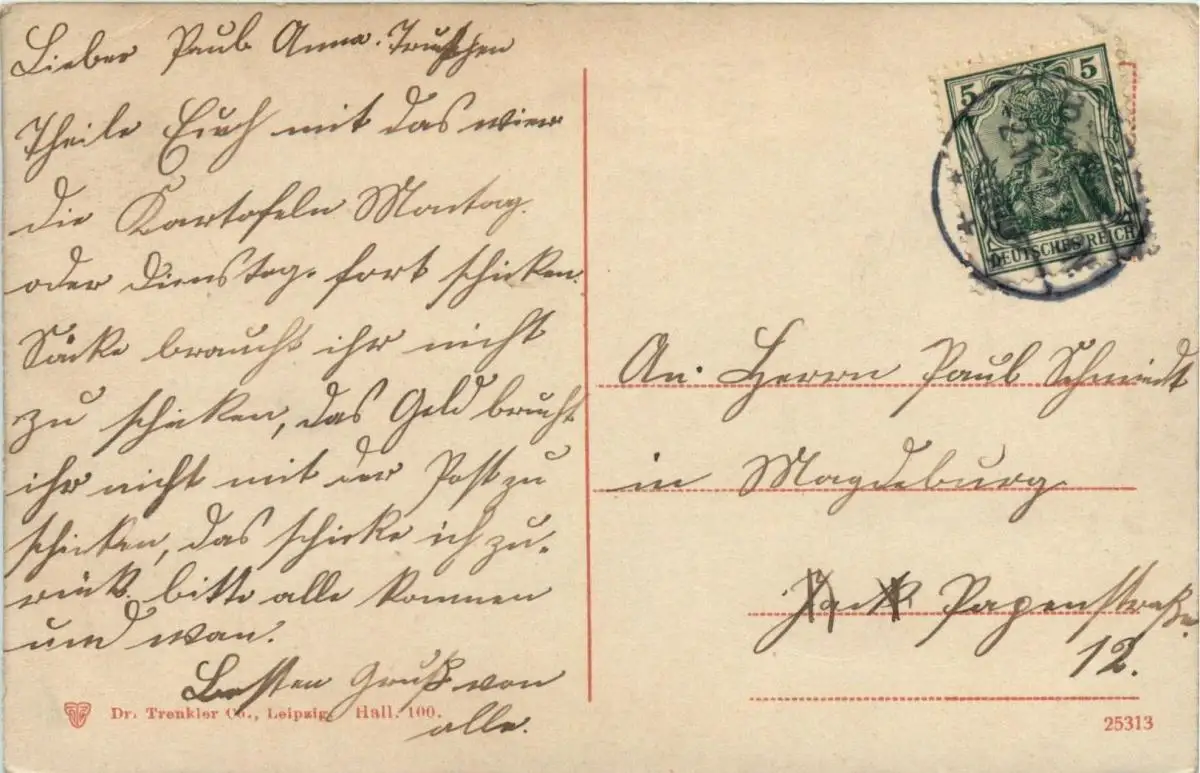 Lieber Paul Anna. Truschen
Theile Euch mit das wier
die Kartofeln Montag.
oder Dienstag. fort schicken.
Säcke braucht ihr nicht
zu schicken, das Geld brucht
ihr nicht mit der Post zu
schicken, das schicke ich zu-
rück. bitte alle kommen
und wan.
Besten Gruß von
alle.
Dr. Trenkler Co., Leipzig. Hall. 100.
5 5
DEUTSCHES REICH
An. Herrn Paul Schmiedt
in Magdeburg
Papenstraße
12.
25313